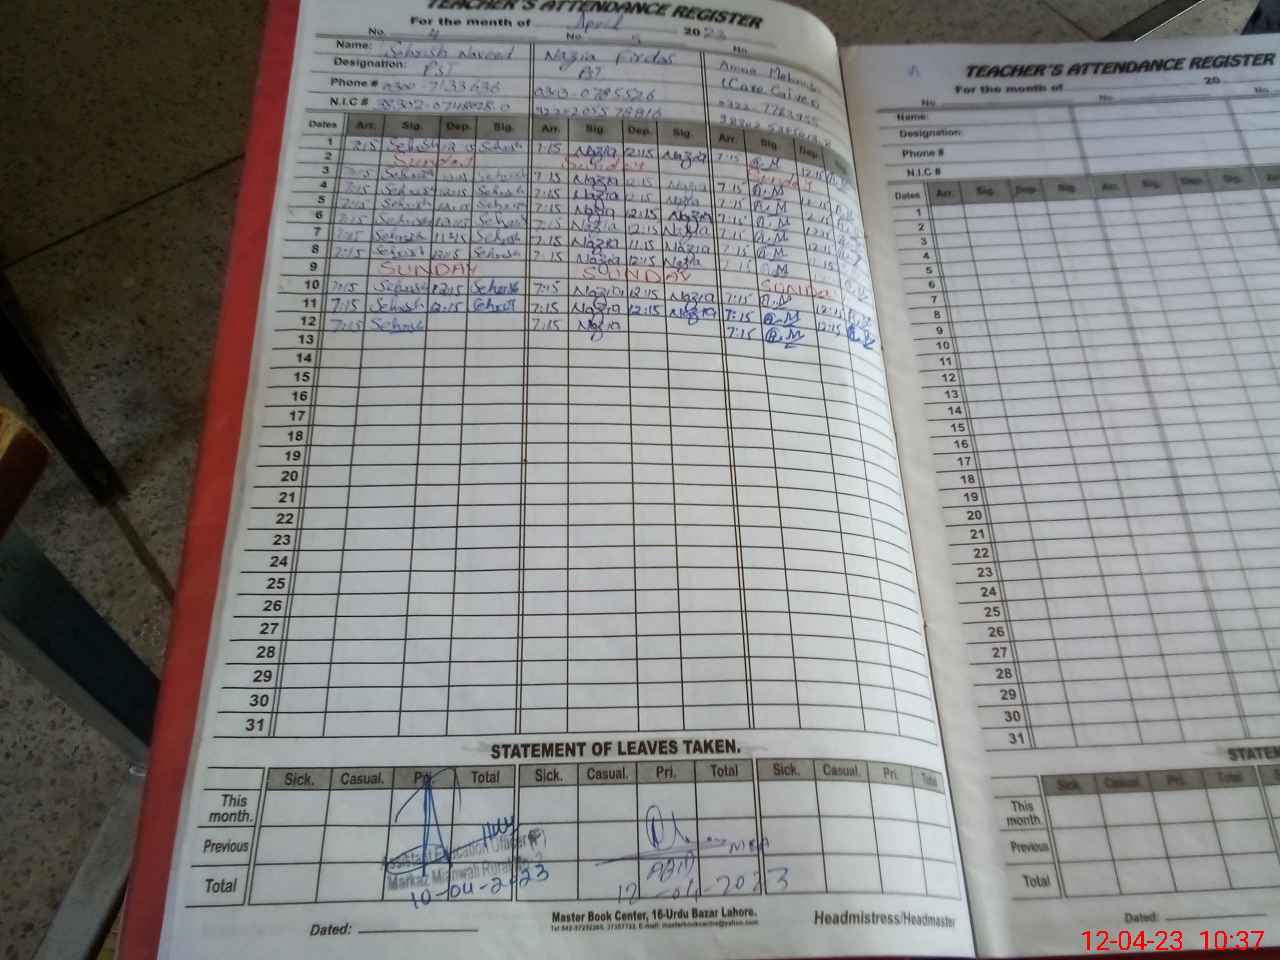 TEACHER'S ATTENDANCE REGISTER
For the month of April 2023
No. 4 No. 5 No.
Name: Sehrish Naveed Nazia Firdos Amna
Designation: PST PST (Care Giver)
Phone # 0300-7133636 0303-0785526
N.I.C #
Dates Arr. Sig. Dep. Sig. Arr. Sig. Dep. Sig. Arr. Sig. Dep.
1 7:15 Sehrish 12:15 Sehrish 7:15 Nazia 12:15 Nazia 7:15 A.M 12:15
2 Sunday Sunday Sunday
3 7:15 Sehrish 12:15 Sehrish 7:15 Nazia 12:15 Nazia 7:15 A.M 12:15
4 7:15 Sehrish 12:15 Sehrish 7:15 Nazia 12:15 Nazia 7:15 A.M 12:15
5 7:15 Sehrish 12:15 Sehrish 7:15 Nazia 12:15 Nazia 7:15 A.M 12:15
6 7:15 Sehrish 12:15 Sehrish 7:15 Nazia 12:15 Nazia 7:15 A.M 12:15
7 7:15 Sehrish 11:15 Sehrish 7:15 Nazia 11:15 Nazia 7:15 A.M 11:15
8 7:15 Sehrish 12:15 Sehrish 7:15 Nazia 12:15 Nazia 7:15 A.M
9 SUNDAY SUNDAY SUNDAY
10 7:15 Sehrish 12:15 Sehrish 7:15 Nazia 12:15 Nazia 7:15 A.M 12:15
11 7:15 Sehrish 12:15 Sehrish 7:15 Nazia 12:15 Nazia 7:15 A.M 12:15
12 7:15 Sehrish 7:15 Nazia 7:15 A.M
13
14
15
16
17
18
19
20
21
22
23
24
25
26
27
28
29
30
31
STATEMENT OF LEAVES TAKEN.
Sick. Casual. Pri. Total Sick. Casual. Pri. Total Sick. Casual. Pri. Total
This month.
Previous
Total
Assistant Education Officer
Markaz Mianwali Rural No. 2
10-04-2023
12-04-2023
Dated:
Master Book Center, 16-Urdu Bazar Lahore.
Headmistress/Headmaster
TEACHER'S ATTENDANCE REGISTER
For the month of 20
No. No. No.
Name:
Designation:
Phone #
N.I.C #
Dates Arr. Sig. Dep. Sig. Arr. Sig. Dep. Sig.
1
2
3
4
5
6
7
8
9
10
11
12
13
14
15
16
17
18
19
20
21
22
23
24
25
26
27
28
29
30
31
Sick. Casual. Pri. Total Sick.
This month.
Previous
Total
Dated:
12-04-23 10:37